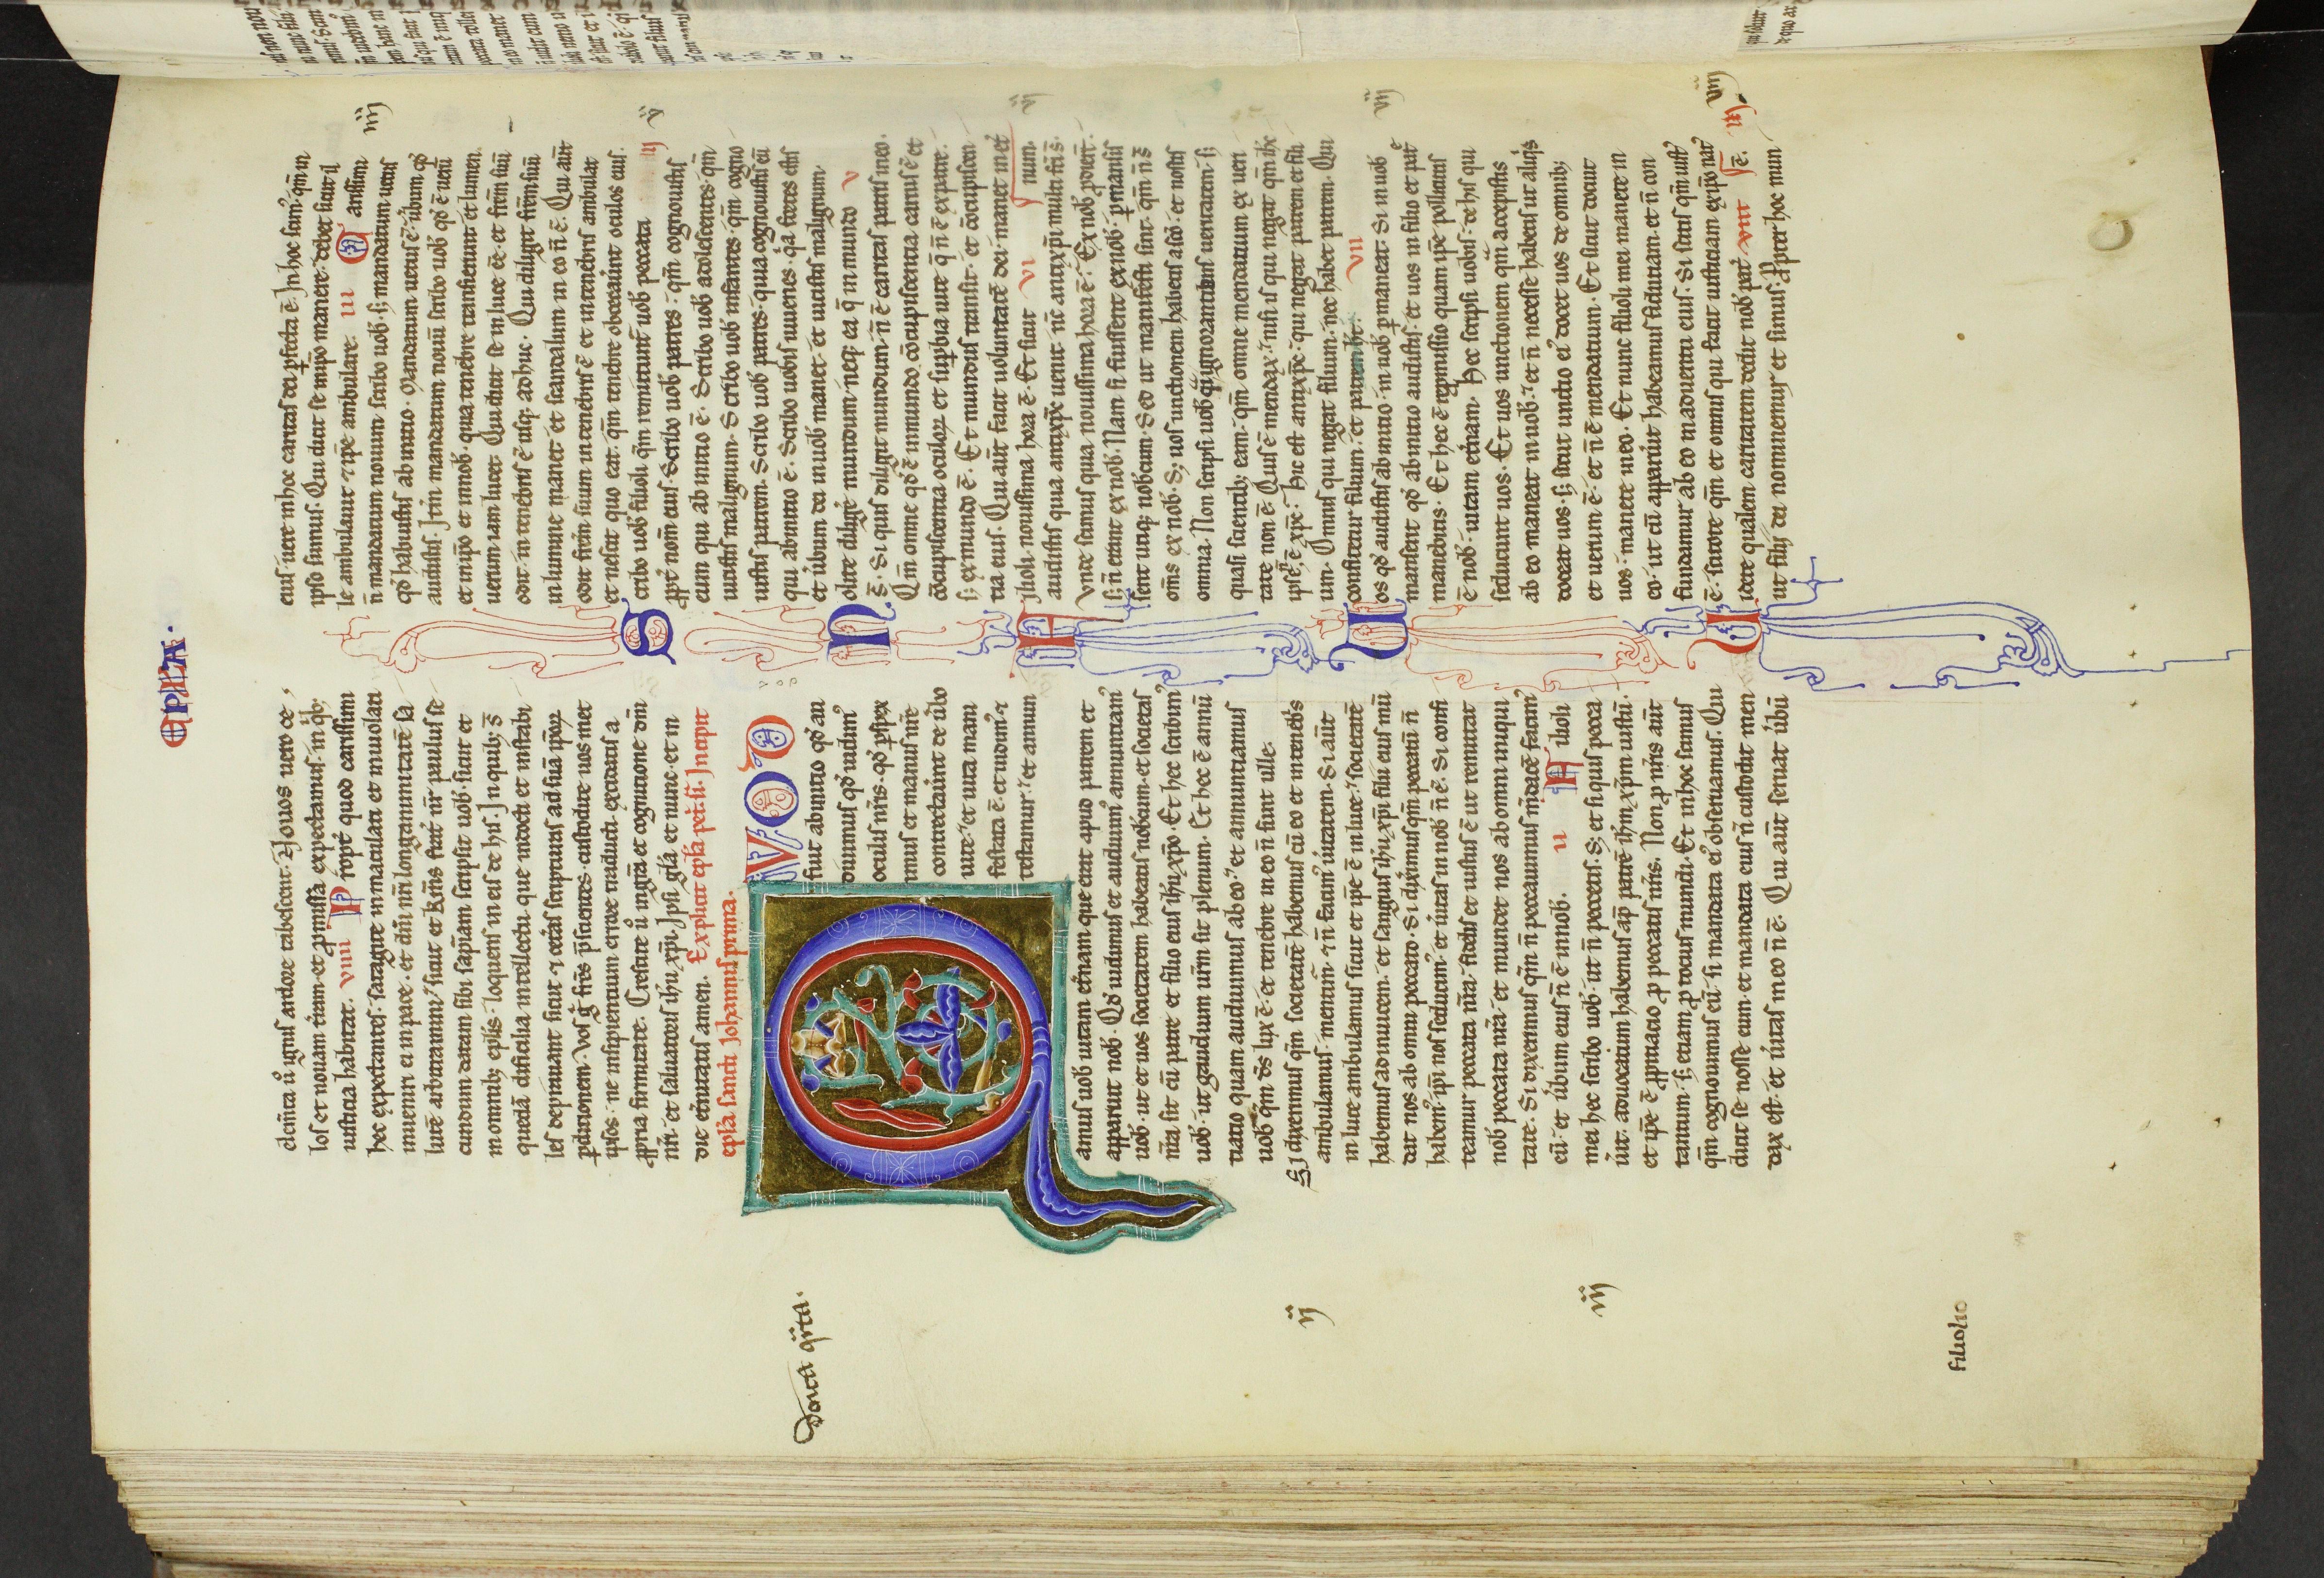 EPLA.
elem̄ta ů ignis ardore tabescent. Nouos uero ce
los et nouam t̄ram et ꝓmissa expectamus. in qͥbꝫ
iustitia habitat. VIIII Propt̄ quod carissimi
hec expectantes. satagite inmaculati et inuiolati
inueniri ei in pace. et dn̄i nr̄i longanimitatē sa
lutē arbitramini. sicut et kr̄us frat̄ nr̄ paulus se
cundum datam sibi sapiam scripsit uob. sicut et
in omnibꝫ epl̄is. loquens in eis de his. In quibꝫ s̄
quedā dificilia intellectu que indocti et instabi
les deprauant sicut ⁊ cetas scripturas ad suā ipoꝝ
ꝑditionem. Vos g̊ frs̄ p̄scientes. custodite uos met
ipsos. ne insipientium errore traducti excidatis a
ꝓpria firmitate. Crescite ů in gr̄a et cognitione dn̄i
nr̄i et saluatoris ih̄u xp̄i. Ipsi gl̄a et nunc et in
die et̄nitatis amen. Explicit epl̄a petri.ii. Incipit
epl̄a sancti Johannis prima.
QVOD
fuit ab initio qd̓ au
diuimus qd̓ uidimꝰ
oculis nr̄is. qd̓ ꝑspex
imus et manus nr̄e
contrectauīnt de ubo
uite. et uita mani
festata ē. et uidimꝰ ⁊
testamur. et annun
tiamus uob uitam et̄nam que erat apud patrem et
apparuit nob. Qd̓ uidimus et audiuimꝰ annuntiamꝰ
uob. ut et uos societatem habeatis nobiscum. et societas
nr̄a sit cū patre et filio eius ih̄u xp̄o. Et hec scribimꝰ
uob. ut gaudium ur̄m sit plenum. Et hec ē annū
tiatio quam audiuimus ab eo. et annuntiamus
uob qm̄ d̄s lux ē. et tenebre in eo n̄ sunt ulle.
Si dixerimus qm̄ societatē habemus cū eo et in tenebs̄
ambulamus. mentim̄ ⁊ n̄ facimꝰ uitatem. Si aūt
in luce ambulamus sicut et ip̄e ē in luce. societatē
habemus ad inuicem. et sanguis ih̄u xp̄i filii eius mū
dat nos ab omni peccato. Si diximus qm̄ peccatū n̄
habemꝰ. ip̄i nos seducimꝰ. et uitas in nob n̄ ē. Si confi
teamur peccata nr̄a. fidelis et iustus ē ut remittat
nob peccata nr̄a. et mundet nos ab omni iniqui
tate. Si dixerimus qm̄ n̄ peccauimus m̄dacē facimꝰ
eū. et ubum eius n̄ ē in nob. II Filioli
mei hec scribo uob. ut n̄ peccetis. Sꝫ et si quis pecca
uit. aduocatum habemus ap̄ patrē ih̄m xp̄m iustū.
et ip̄e ē ꝓpitiatio ꝓ peccatis nr̄is. Non ꝓ nr̄is aūt
tantum. sꝫ etiam ꝓ totius mundi. Et in hoc scimus
qm̄ cognouimus eū. si mandata eiꝰ obseruamus. Qui
dicit se nosse eum et mandata eius n̄ custodit men
dax est. et uitas in eo n̄ ē. Qui aūt seruat ubū
eius uere in hoc caritas dei ꝑfecta ē. In hoc scimꝰ. qm̄ in
ipso sumus. Qui dicit se in ip̄o manere. debet sicut il
le ambulauit ⁊ ip̄e ambulare. III Carissimi
n̄ mandatum nouum scribo uob. sꝫ mandatum uetꝰ
qd̓ habuistis ab initio. Mandatum uetus ē. ubum qd̓
audistis. Itm̄ mandatum nouū scribo uob qd̓ ē uerū
et in ip̄o et in nob. quia tenebre transierunt et lumen
uerum iam lucet. Qui dicit se in luce eē. et frēm suū
odit. in tenebris ē usqꝫ adhuc. Qui diligit frēm suū
in lumine manet. et scandalum in eo n̄ ē. Qui aūt
odit frēm suum in tenebris ē et in tenebris ambulat
et nescit quo eat. qm̄ tenebre obcecaūnt oculos eius.
Scribo uob filioli qm̄ remittunt̄ uob peccata IIII
ꝓpt̄ nom̄ eius. Scribo uob patres. qm̄ cognouistis
eum qui ab initio ē. Scribo uob adolescentes. qm̄
uicistis malignum. Scribo uob infantes. qm̄ cogno
uistis patrem. Scribo uob patres. quia cognouistis eū
qui ab initio ē. Scribo uobis iuuenes. qͥa fortes estis
et ubum dei in uob manet. et uicistis malignum.
Nolite diligē mundum. neqꝫ ea q̄ in mundo V
s̄. Si quis diligit mundum. n̄ ē caritas patris in eo.
Qm̄ omne qd̓ ē in mundo. cōcupiscentia carnis ē et
cōcupiscentia oculoꝝ et suꝑbia uite q̄ n̄ ē ex patre.
sꝫ ex mundo ē. Et mundus transit. et cōcupiscen
tia eius. Qui aūt facit uoluntatē dei. manet in et̄
Filioli. nouissima hora ē. Et sicut VI num.
audistis quia antixp̄c uenit. nc̄ antixp̄i multi fci s̄.
Vnde scimus quia nouissima hora ē. Ex nob ꝓdiert̄.
sꝫ n̄ erant ex nob. Nam si fuissent ex nob. ꝑmansis
sent utiqꝫ nobiscum. Sed ut manifesti sint. qm̄ n̄ s̄
oms̄ ex nob. Sꝫ uos unctionem habetis a sc̄o. et nostis
omnia. Non scripsi uob quasi ignorantibus ueritatem. sꝫ
quasi scientibꝫ eam. qm̄ omne mendatium ex ueri
tate non ē. Quis ē mendax. nisi is qui negat qm̄ ih̄c
n̄ ē xp̄c. hic est antixp̄c. qui negat patrem et fili
um. Omnis qui negat filium. nec habet patrem. Qui
confitetur filium. et patrem hēt. VII
Vos qd̓ audistis ab initio. in uob ꝑmaneat. Si in uob
manserit qd̓ ab initio audistis. et uos in filio et patē
manebitis. Et hec ē repmissio quam ip̄e pollicitus
ē nob. uitam et̄nam. Hec scripsi uobis. de his qui
seducunt uos. Et uos unctionem qm̄ accepistis
ab eo maneat in uob. et n̄ necesse habetis ut aliqͥs
doceat uos. sꝫ sicut unctio eiꝰ docet uos de omnibꝫ
et uerum ē. et n̄ ē mendatium. Et sicut docuit
uos. manete in eo. Et nunc filioli mei manete in
eo. ut cū apparuit habeamus fiduciam. et n̄ con
fundamur ab eo in aduentu eius. Si scitis qm̄ iustꝰ
ē. scitote qm̄ et omnis qui facit iusticiam ex ip̄o natꝰ
Videte qualem caritatem dedit nob pat̄ VIII ē.
ut filii dei nominemur et simus. Propter hoc mun
Dorica qͣrta.
ij
iij
iiij
v
vj
vij
viij
filiolio